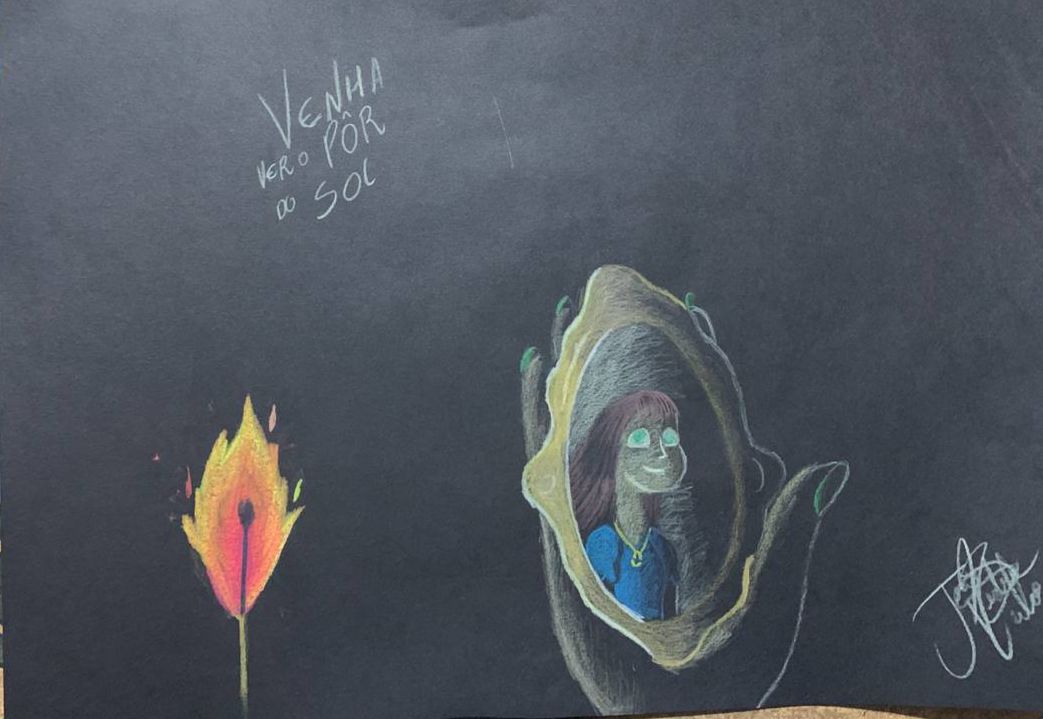 VENHA
VER O PÔR
DO SOL